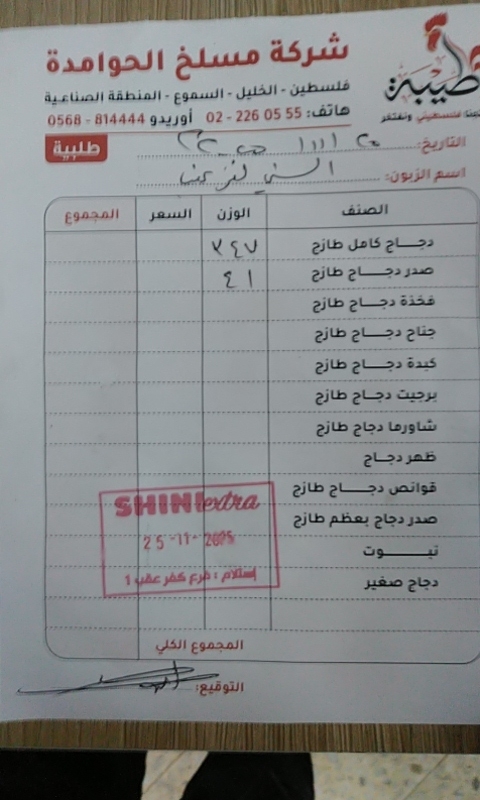 شركة مسلخ الحوامدة
طيبة
فلسطين - الخليل - السموع - المنطقة الصناعية
هاتف: 55 05 226 - 02 أوريدو 814444 - 0568
طلبية
التاريخ:
اسم الزبون:
الصنف الوزن السعر المجموع
دجاج كامل طازج ٣٤٧
صدر دجاج طازج ٤١
فخذة دجاج طازج
جناح دجاج طازج
كبدة دجاج طازج
برجيت دجاج طازج
شاورما دجاج طازج
ظهر دجاج
قوانص دجاج طازج
صدر دجاج بعظم طازج
نبوت
دجاج صغير
SHINI extra
25 -11- 2025
إستلام : فرع كفر عقب 1
المجموع الكلي
التوقيع: